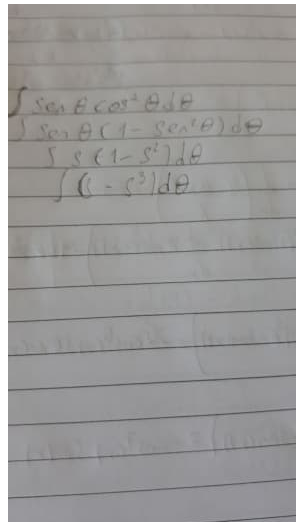 ∫ Sen θ cos² θ dθ
∫ Sen θ (1 - Sen² θ) dθ
∫ s (1 - s²) dθ
∫ (s - s³) dθ